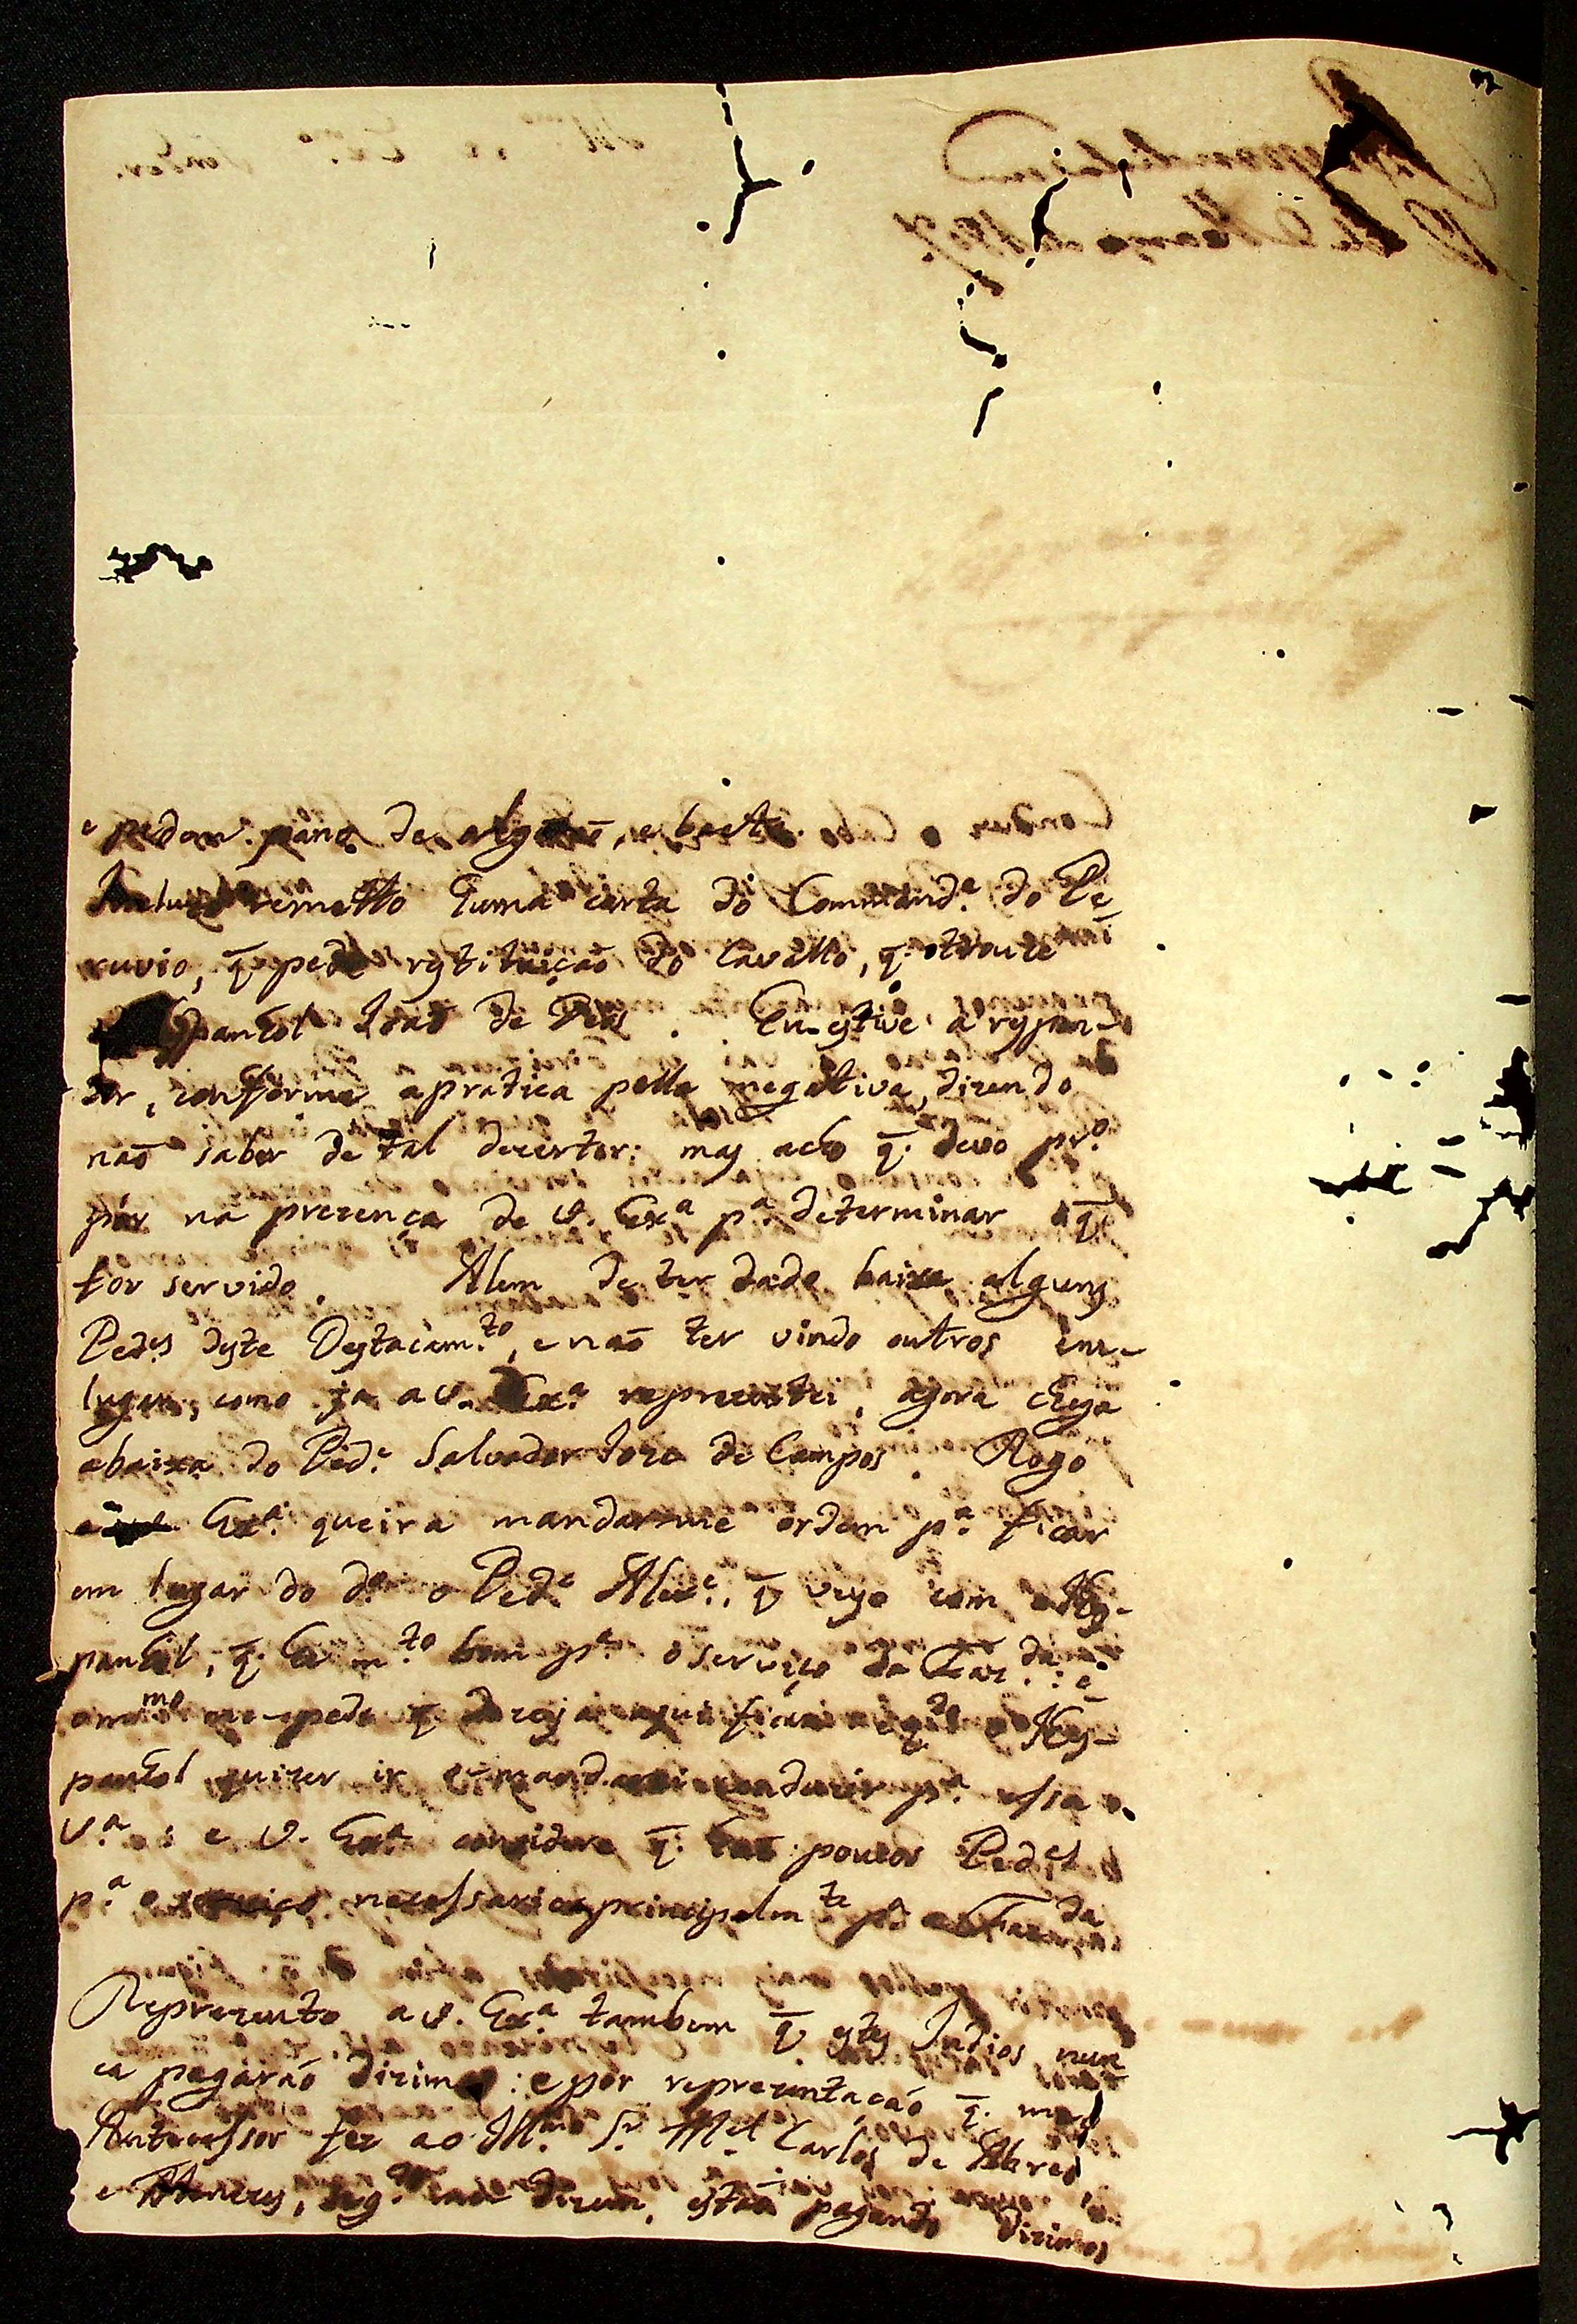 e pedem pano de algodaõ, e baeta.
Incluzo remetto huma carta do Commandᵉ do Pe
ruvio, q̄ pede restituiçaõ do Cavallo, q̄ otrouce
panhol Joaõ de Deos. Eu estive a respon-
der, conforme apratica pella negativa, dizendo
naõ saber de tal dezertor: mas acho q̄ devo pro
pôr na prezença de V. Exᵃ pᵃ determinar oq̄
for servido. Alem de ter dado baixa alguns
Pedes deste Destacamᵗᵒ, e naõ ter vindo outros em
lugar, como ja a V. Exᵃ reprezentei, agora chega
abaixa do Pedᵉ Salvador Joze de Campos. Rogo
a Exᵃ queira mandar-me ordem pᵃ ficar
em lugar do dᵒ o Pedᵉ Alexᵉ, q̄ veyo com o Hes-
panhol, q̄ he mᵗᵒ bom pᵃ o serviço da Fazᵈᵃ: e
omᵐᵒ me pede q̄ dezeja aqui ficar e qᵈᵒ o Hes-
panhol quizer ir o mand conduzir pᵃ essa
Vᵃ: e V. Exᵃ considere q̄ saõ poucos Pedᵉˢ
pᵃ o serviço necessario principalmᵗᵉ pᵃ a Fazᵈᵃ
Reprezento a V. Exᵃ tambem q̄ estes Indios nun
ca pagáraõ dizimos: e por reprezentaçaõ q̄ meu
Antecessor fez ao Illᵐᵒ Sʳ Mᵉˡ Carlos de Abreu
e Menezes, segᵈᵒ me dizem, estaõ pagando dizimos